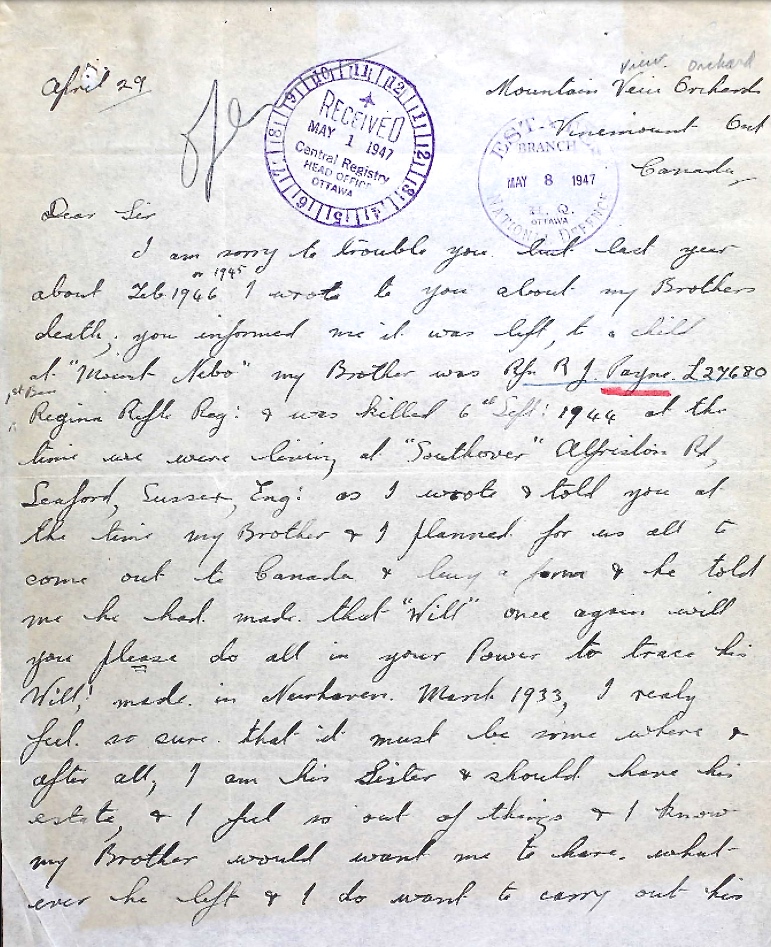 view orchard
April 29
Mountain Veiu Orchard
Vinemount Ont
Canada
10 11 12 1 2 3 4 5 6 7 8 9
RECEIVED
MAY 1 1947
Central Registry
HEAD OFFICE
OTTAWA
ESTATES
BRANCH
MAY 8 1947
H. Q.
OTTAWA
NATIONAL DEFENCE
Dear Sir
I am sorry to trouble you but last year
or 1945
about Feb 1946 I wrote to you about my Brothers
death, you informed me it was left, to a child
at "Mount Nebo" my Brother was Rfn R J Payne. L27680
1st Bn
Regina Rifle Reg: & was killed 6th Sept: 1944 at the
time we were living at "Southover" Alfriston Rd,
Seaford, Sussex, Eng: as I wrote & told you at
the time my Brother & I planned for us all to
come out to Canada & buy a farm & he told
me he had made that "Will" once again will
you please do all in your Power to trace his
Will! made in Newhaven. March 1933, I realy
feel so sure that it must be some where &
after all, I am his Sister & should have his
estate, & I feel so out of things & I know
my Brother would want me to have what-
ever he left & I do want to carry out his